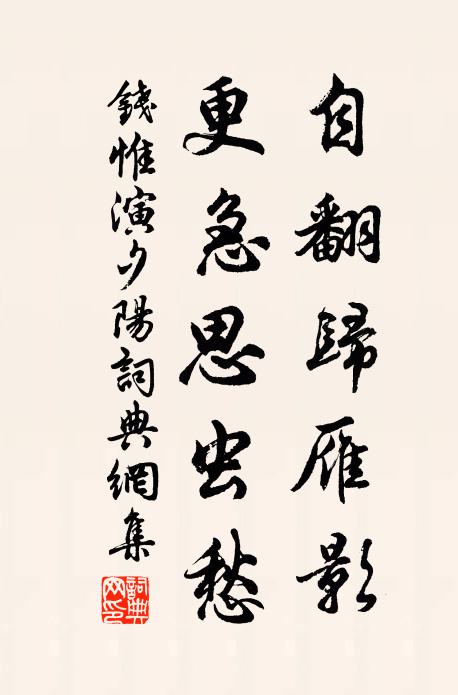 自翻歸雁影
更急思虫愁
錢惟演夕陽詞典網集
詞典网印